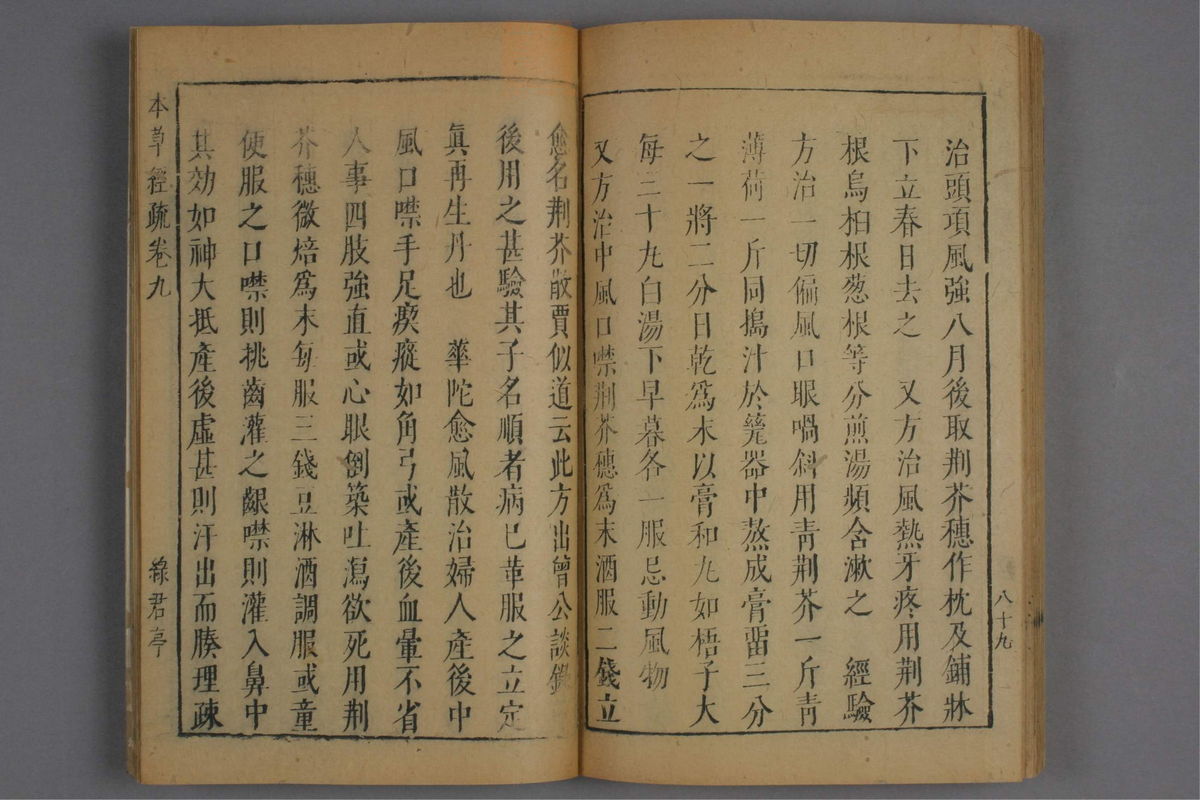 治頭項風強八月後取荆芥穗作枕及鋪牀
下立春日去之　又方治風熱牙疼用荆芥
根烏桕根葱根等分煎湯頻含漱之　經驗
方治一切偏風口眼喎斜用靑荆芥一斤靑
薄荷一斤同搗汁於甆器中熬成膏畱三分
之一將二分日乾爲末以膏和丸如梧子大
每三十丸白湯下早暮各一服忌動風物
又方治中風口噤荆芥穗爲末酒服二錢立
八十九
愈名荆芥散賈似道云此方出曾公談錄
後用之甚驗其子名順者病已革服之立定
眞再生丹也　華陀愈風散治婦人產後中
風口噤手足瘈瘲如角弓或產後血暈不省
人事四肢強直或心眼倒築吐瀉欲死用荆
芥穗微焙爲末每服三錢豆淋酒調服或童
便服之口噤則挑齒灌之齦噤則灌入鼻中
其効如神大抵產後虛甚則汗出而腠理疎
本草經疏卷九
綠君亭